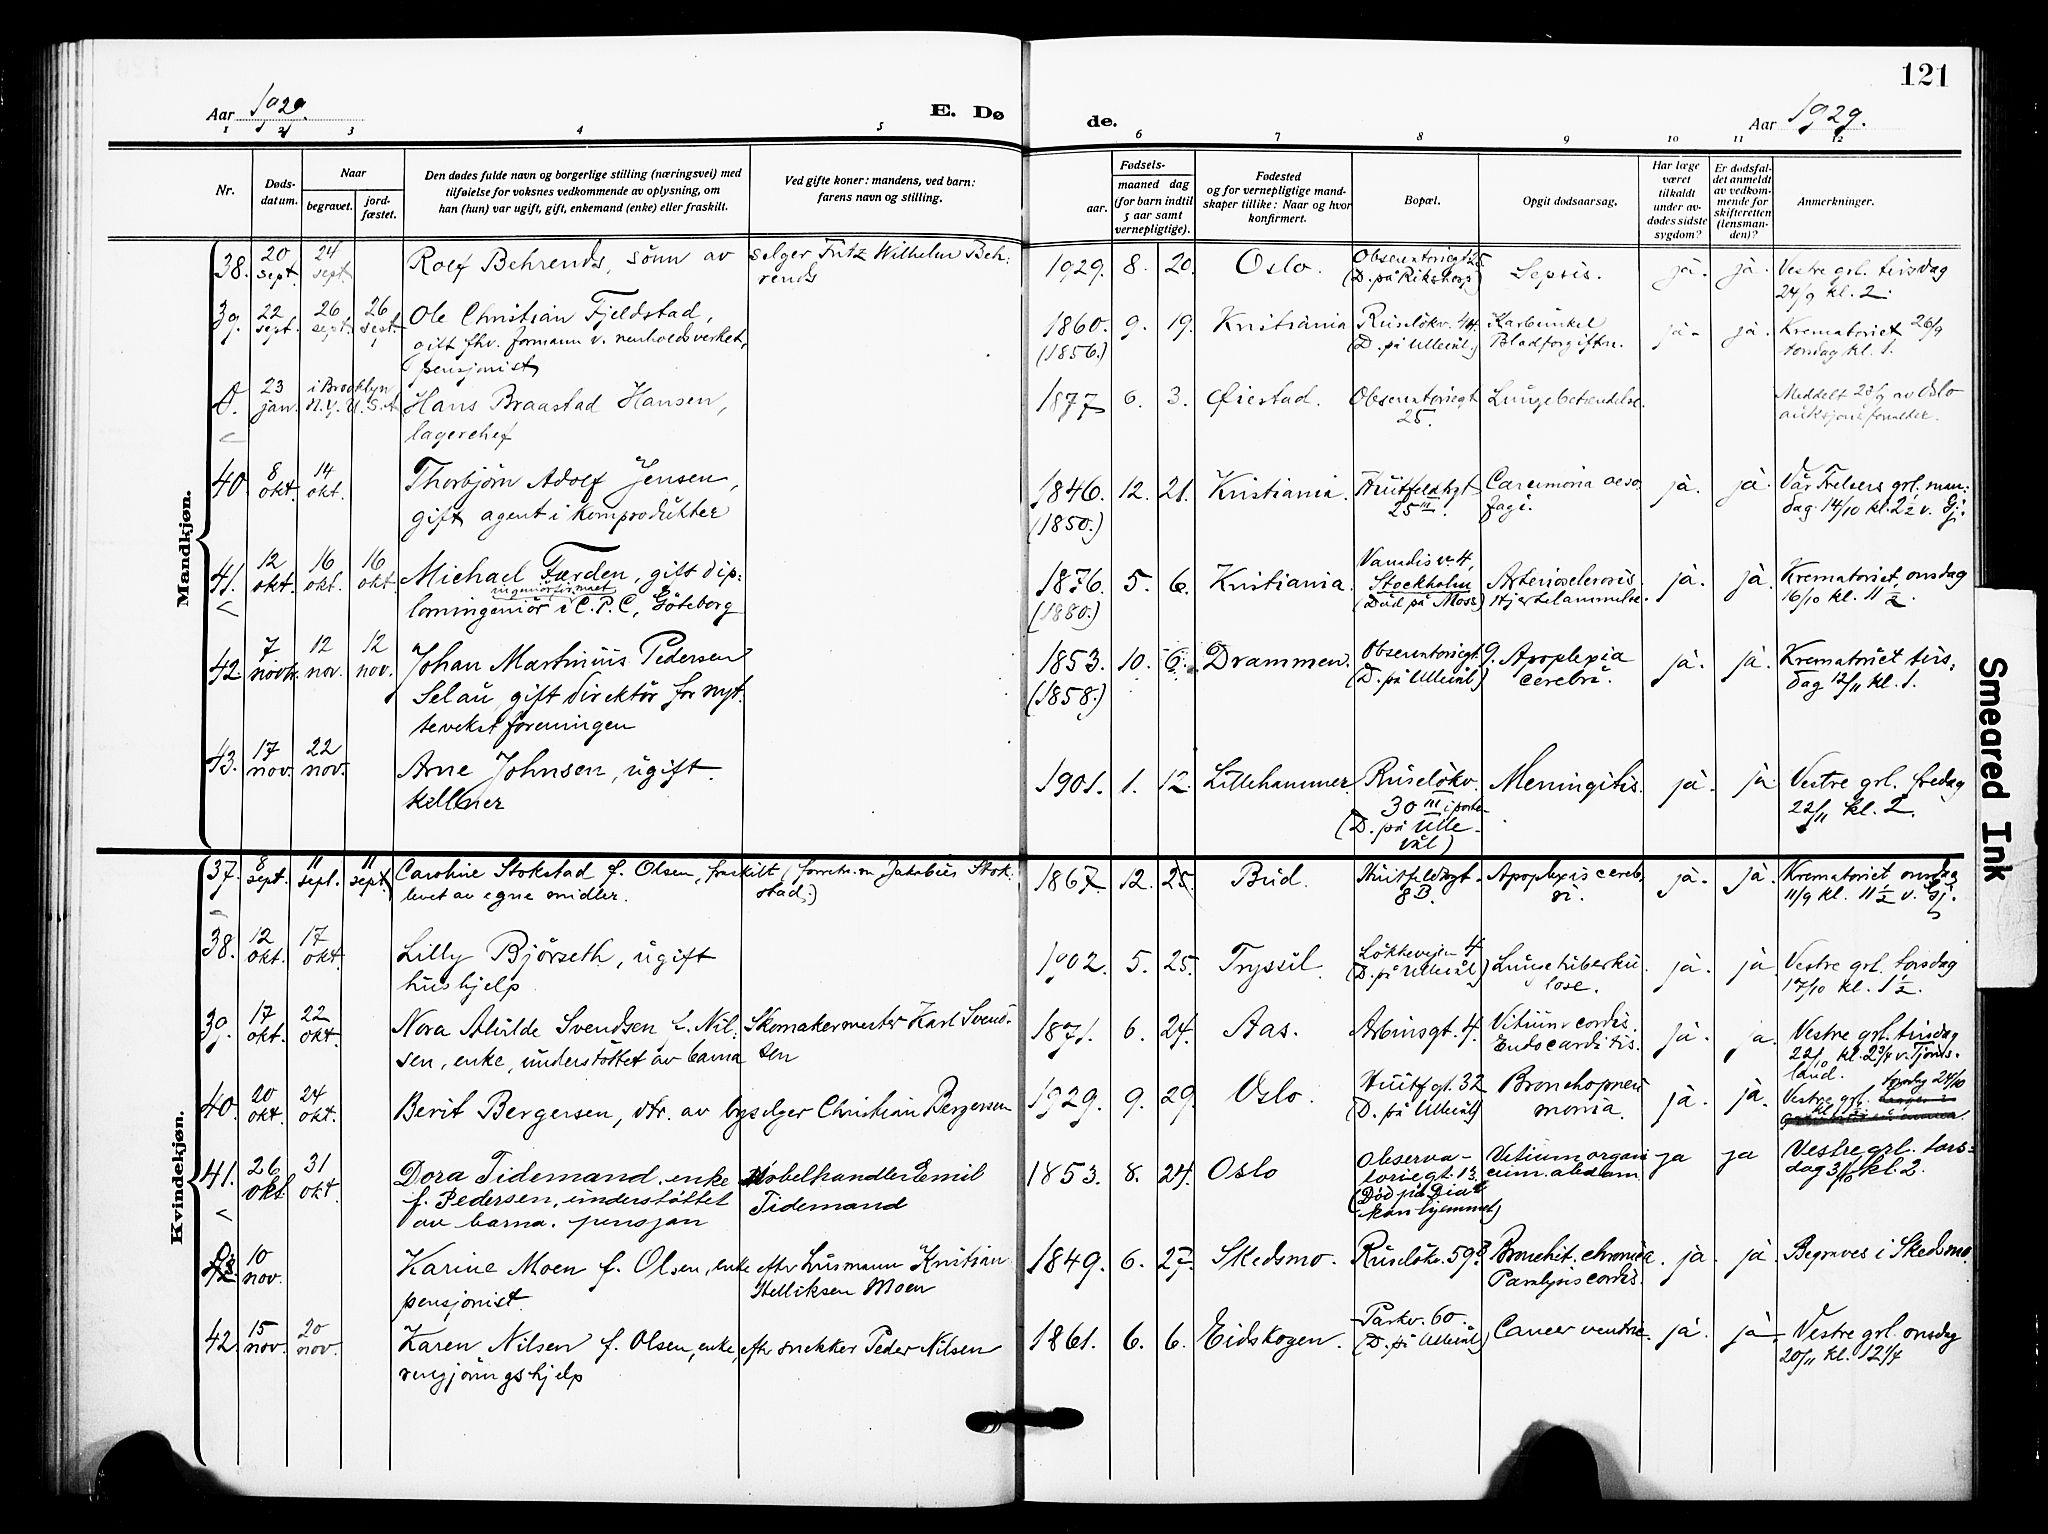 121
Aar 1929.
E. Dø
de.
Aar 1929.
1 2 3 4 5 6 7 8 9 10 11 12
Nr.
Døds-
datum.
Naar
begravet.
jord-
fæstet.
Den dødes fulde navn og borgerlige stilling (næringsvei) med
tilføielse for voksnes vedkommende av oplysning, om
han (hun) var ugift, gift, enkemand (enke) eller fraskilt.
Ved gifte koner: mandens, ved barn:
farens navn og stilling.
Fødsels-
aar.
maaned dag
(for barn indtil
5 aar samt
vernepligtige).
Fødested
og for vernepligtige mand-
skaper tillike: Naar og hvor
konfirmert.
Bopæl.
Opgit dødsaarsag.
Har læge
været
tilkaldt
under av-
dødes sidste
sygdom?
Er dødsfal-
det anmeldt
av vedkom-
mende for
skifteretten
(lensman-
den)?
Anmerkninger.
Mandkjøn.
38. 20 sept. 24 sept. Rolf Behrends, sönn av selger Fritz Wilhelm Beh-
rends
1929. 8. 20. Oslo. Observatoriegt. 25. (D. på Rikshosp) Sepsis. ja. ja. Vestre grl. tirsdag
24/9 kl. 2.
39. 22 sept. 26 sept. 26 sept. Ole Christian Fjeldstad,
gift fhv. formann v. renholdsverket,
pensjonist
1860. 9. 19. Kristiania Ruselökv. (D. på Ullevål.) Karbunkel
(1856.) Blodforgiftn. ja. ja. Krematoriet 26/9
torsdag kl. 1.
0. 23 jan. i Brooklyn N.Y. U.S.A Hans Braastad Hansen,
lagerchef
1877 6. 3. Øiestad. Observatoriegt 25. Lungebetendelse. Meddelt 23/9 av Oslo
auksjonsforvalter.
40. 8 okt. 14 okt. Thorbjörn Adolf Jensen,
gift agent i kornprodukter
1846. 12. 21. Kristiania. Huitfeldtgt 25 III. Carcinoma oeso-
(1850.) fagi. ja. ja. Vår Frelsers grl. man-
dag 14/10 kl. 2½ v. Gj.
41. 12 okt. 16 okt. 16 okt. Michael Færden, gift dip-
lomingeniör i ingeniörfirmaet C.P.C, Göteborg
1876. 5. 6. Kristiania. Vanadisv. 4, Stockholm (Död på Moss) Arteriosclerosis.
(1880.) Hjertelammelse. ja. ja. Krematoriet, onsdag
16/10 kl. 11½.
42 7 novbr. 12 nov. 12 nov. Johan Martinius Pedersen
Selau, gift direktör for nyt-
tevekstforeningen
1853. 10. 6. Drammen. Observatoriegt. 9. (D. på Ullevål) Apoplexia
(1858.) cerebri. ja. ja. Krematoriet tirs-
dag 12/11 kl. 1.
43. 17 nov. 22 nov. Arne Johnsen, ugift.
kellner
1901. 1. 12. Lillehammer. Ruselökv. 30 III i porten (D. på Ulle-
vål) Meningitis. ja. ja Vestre grl. fredag
22/11 kl. 2.
Kvindekjøn.
37. 8 sept. 11 sept. 11 sept. Caroline Stokstad f. Olsen, fraskilt (forretn.m Jakobus Stok-
levet av egne midler. stad.)
1867. 12. 25. Bud. Huitfeldtgt. 8 B. Apoplexis cereb-
ri. ja. ja. Krematoriet onsdag
11/9 kl. 11½ v. Gj.
38. 12 okt. 17 okt. Lilly Björseth, ugift
hushjelp.
1902. 5. 25. Trysil. Lökkeveien 4 (D. på Ullevål) Lungetuberku-
lose. ja. ja Vestre grl. torsdag
17/10 kl. 1½.
39. 17 okt. 22 okt. Nora Alvilde Svendsen f. Nil- Skomakermester Karl Svend-
sen, enke, understöttet av barna sen
1871. 6. 24. Aas. Arbinsgt. 4. Vitium cordis.
Endocarditis. ja. ja. Vestre grl. tirsdag
22/10 kl. 2¾ v. Tjönds-
land.
40. 20 okt. 24 okt. Berit Bergersen, dtr. av byselger Christian Bergersen
1929. 9. 29. Oslo. Huitf.gt. 32 (D. på Ullevål) Bronchopneu-
monia. ja. ja. Vestre grl. torsdag 24/10
41. 26 okt 31 okt. Dora Tidemand. enke Möbelhandler Emil
f. Pedersen, understöttet Tidemand
av barna. pensjon
1853. 8. 24. Oslo Observa-
toriegt. 13. (Död på Dia-
konhjemmet) Vitium organi
cum. abdom. ja ja Vestre grl. tors-
dag 31/10 kl. 2.
10 nov. Karine Moen f. Olsen, enke efter husmann Kristian
pensjonist. Helliksen Moen
1849. 6. 27. Skedsmo. Ruselökv. 59 Bronchit. chronica.
Paralysis cordis. ja. ja Begraves i Skedsmo.
42. 15 nov. 20 nov. Karen Nilsen f. Olsen, enke, eftr snekker Peder Nilsen
rengjöringshjelp
1861. 6. 6. Eidskogen. Parkv. 60. (D. på Ullevål) Cancer ventric. ja. ja. Vestre grl. onsdag
20/11 kl. 12¼
Smeared Ink